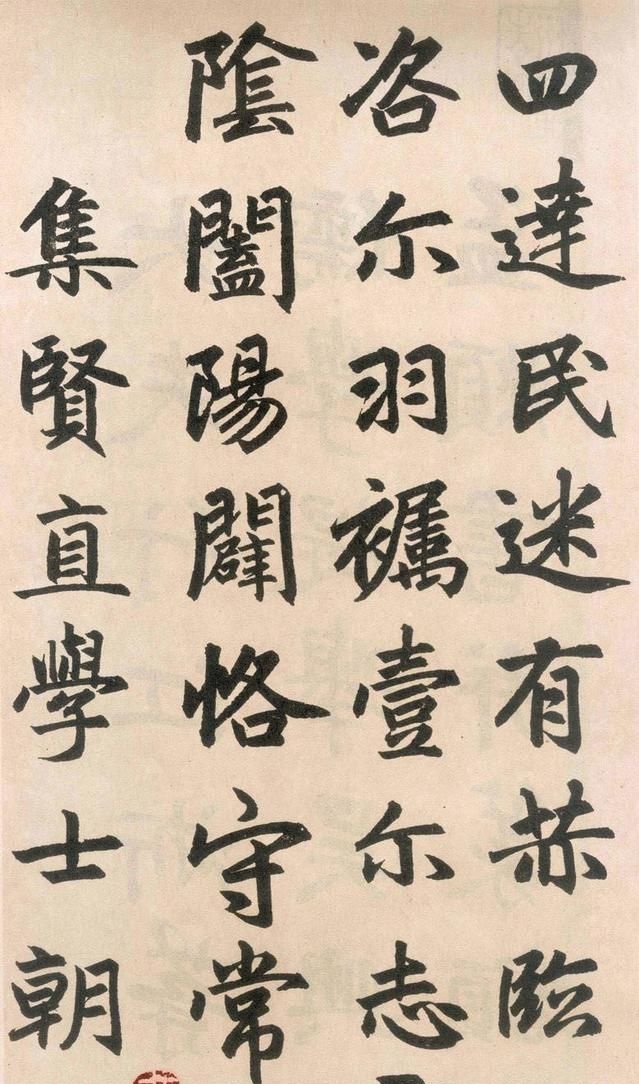 四達民迷有赫臨
咨尔羽壹尔志
陰闔陽闢恪守常
集賢直學士朝